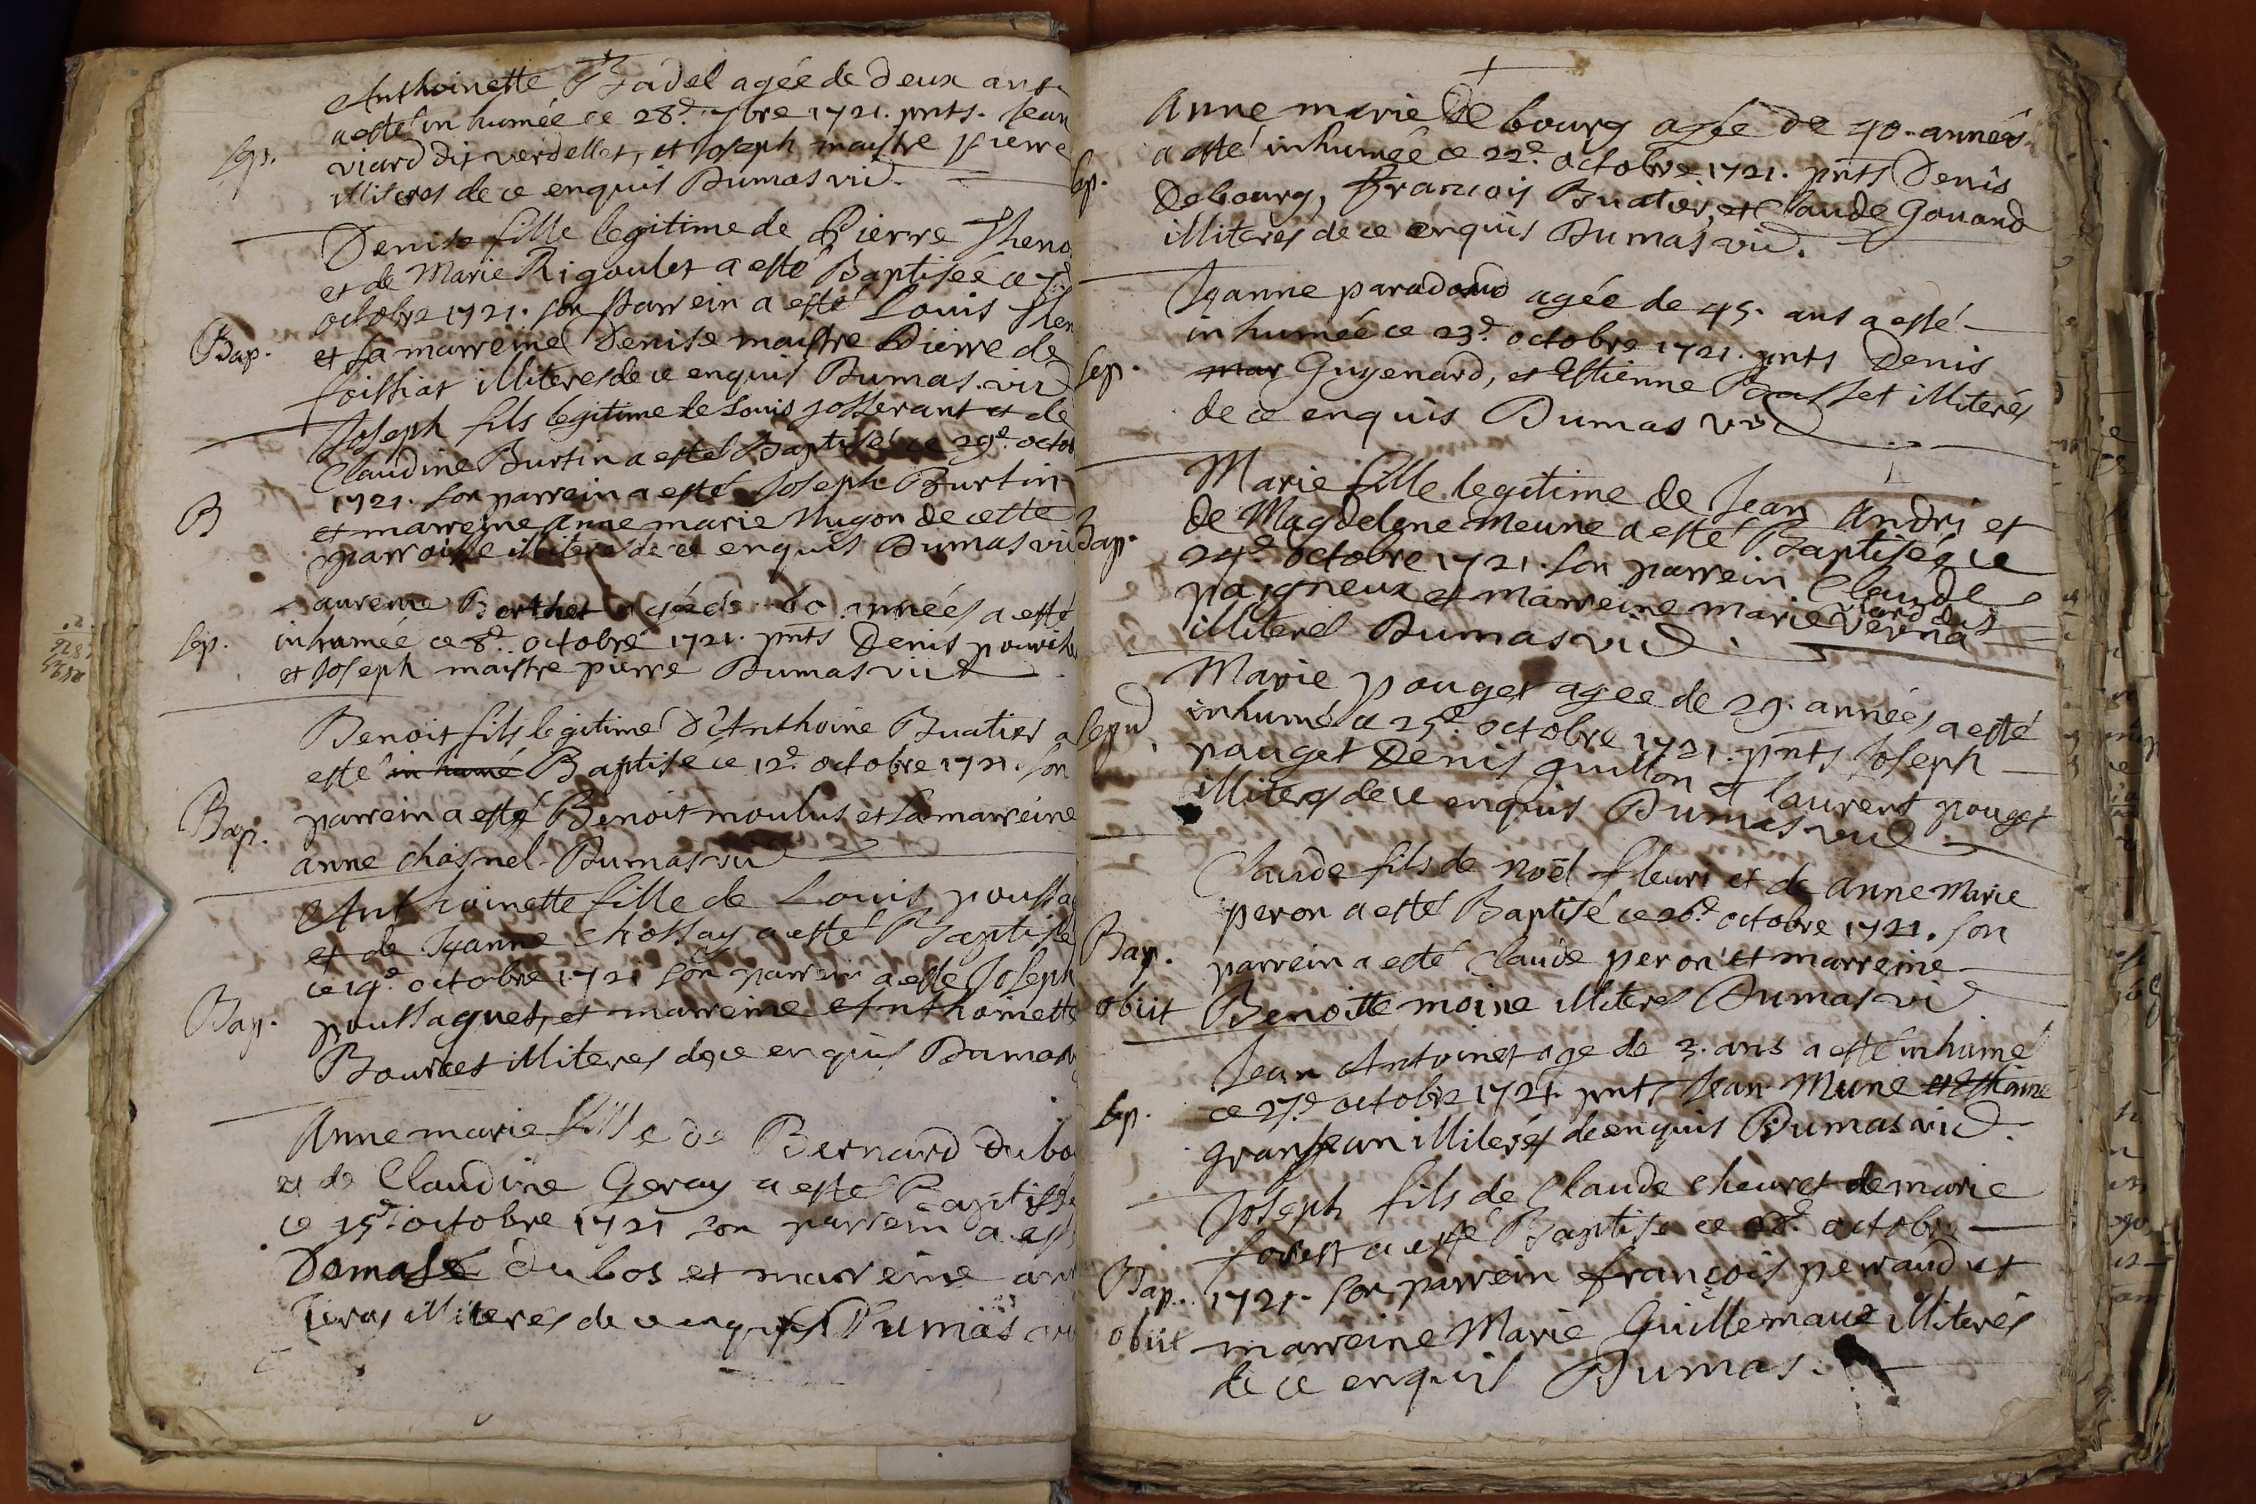 Anthoinette Badel agée de deux ans
a esté inhumée ce 28e. 7bre 1721. pnts. Jean
Sep.
viard dit verdellet, et Joseph maistre pierre
illiteres de ce enquis Dumas vic
Denise fille legitime de Pierre Theno
et de Marie Rigoulet a esté Baptisée ce 7e
octobre 1721. son parrein a esté Louis Then
Bap.
et sa marreine Denise maistre Pierre de
foissiat illiteres de ce enquis Dumas. vic
Joseph fils legitime de Louis josserant et de
Claudine Burtin a esté Baptisé ce 29e. octob
1721. son parrein a esté Joseph Burtin
B
et marreine anne marie hugon de cette
parroisse illiteres de ce enquis Dumas vic
Laurence Berthet agée de 60. années a esté
Sep.
inhumée ce 8e. octobre 1721. pnts Denis
et Joseph maistre pierre Dumas vic
Benoit fils legitime d'Anthoine Buatier a
esté inhumé Baptisé ce 12e. octobre 1721. son
Bap.
parrein a esté Benoit moulus et sa marreine
anne chasnel Dumas vic
Anthoinette fille de Louis poussa
et de Jeanne chossay a esté Baptisée
ce 19e. octobre 1721 son parrein a esté Joseph
Bap.
poussaguet, et marreine Anthoinette
Bourcet illiteres de ce enquis Dumas
Anne marie fille de Bernard dubo
et de Claudine Geray a esté Baptisée
ce 15e. octobre 1721 son parrein a est
dubos et marreine an
illiteres de ce enquis Dumas vic
Anne marie De bourg agée de 40. années
a esté inhumée ce 22e. octobre 1721. pnts Denis
Sep.
Debourg, francois Buatier, et Claude Gouand
illiteres de ce enquis Dumas vic.
Jeanne paradond agée de 45. ans a esté
inhumée ce 23e. octobre 1721. pnts Denis
Sep.
mar Guyenard, et Estienne Basset illiterés
de ce enquis Dumas vic
Marie fille legitime de Jean Andri et
de Magdelene meune a esté Baptisée ce
Bap.
24e. octobre 1721. son parrein Claude
paigneux et marreine marie viard dit
verna
illiteres Dumas vic.
Marie pouget agee de 29. années a esté
Sepu.
inhumé ce 25e. octobre 1721. pnts Joseph
pouget Denis guillon et laurent pouget
illiteres de ce enquis Dumas vic
Claude fils de noël fleuri et de anne Marie
peron a esté Baptisé ce 26e. octobre 1721. son
Bap.
parrein a esté Claude peron et marreine
obiit
Benoitte moine illiteres Dumas vic
Jean Antoinet age de 3. ans a esté inhumé
ce 27e octobre 1721. pnts Jean Mune et Estienne
Sep.
granjean illiterés de enquis Dumas vic.
Joseph fils de Claude cheuret de marie
forest a esté Baptise ce 28e. octobre
Bap.
1721. son parrein françois perraud et
obiit
marreine Marie Guillemaux illiterés
de ce enquis Dumas.